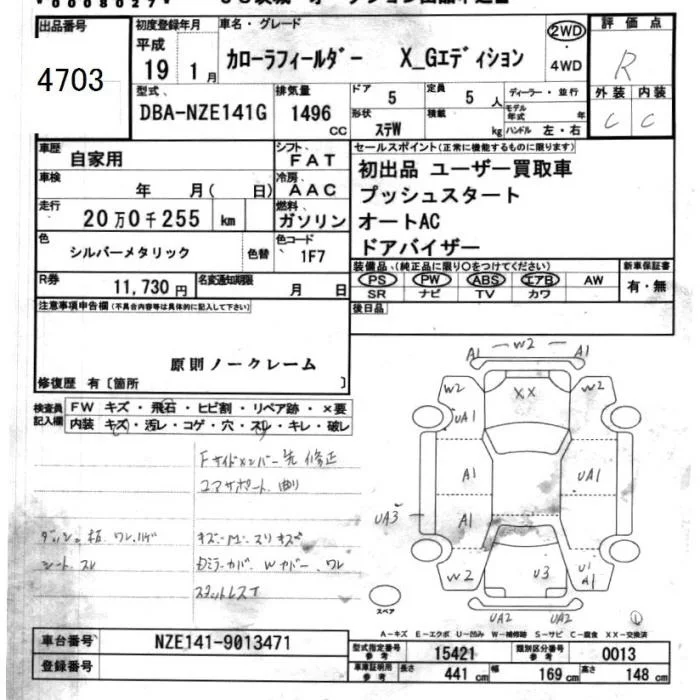 0008027
出品番号
4703
初度登録年月
平成
19 1月
車名・グレード
カローラフィールダー X_Gエディション
2WD
・
4WD
評価点
R
外装 内装
C C
型式、
DBA-NZE141G
排気量
1496
cc
ドア
5
定員
5 人
形状
ステW
積載
kg
ディーラー・並行
モデル年式 年
ハンドル 左・右
車歴
自家用
シフト、
FAT
車検
年 月( 日)
冷房、
AAC
走行
20万0千255 km
燃料、
ガソリン
色
シルバーメタリック
色替
色コード
1F7
R券
11,730円
名変通知期限
月 日
セールスポイント(正常に機能するものに限ります)
初出品 ユーザー買取車
プッシュスタート
オートAC
ドアバイザー
装備品、(純正品に限り○をつけてください)
PS PW ABS エアB AW
SR ナビ TV カワ
新車保証書
有・無
後日品
注意事項申告欄(不具合内容等は具体的に記入して下さい)
原則ノークレーム
修復歴 有〔箇所 〕
検査員記入欄
FW キズ・飛石・ヒビ割・リペア跡・×要
内装 キズ・汚レ・コゲ・穴・スレ・キレ・破レ
Fサイドメンバー先 修正
コアサポート 曲り
シート スレ
スタットレスT
A1 W2 A1
W2 XX W2
UA1
A1 UA1
UA3 A1
W2 U3 U1 A1
UA2 UA2
①
スペア
A-キズ E-エクボ U-凹み W-補修跡 S-サビ C-腐食 XX-交換済
車台番号
NZE141-9013471
登録番号
型式指定番号
参考
15421
類別区分番号
参考
0013
車庫証明用
参考
長さ
441 cm
幅
169 cm
高さ
148 cm